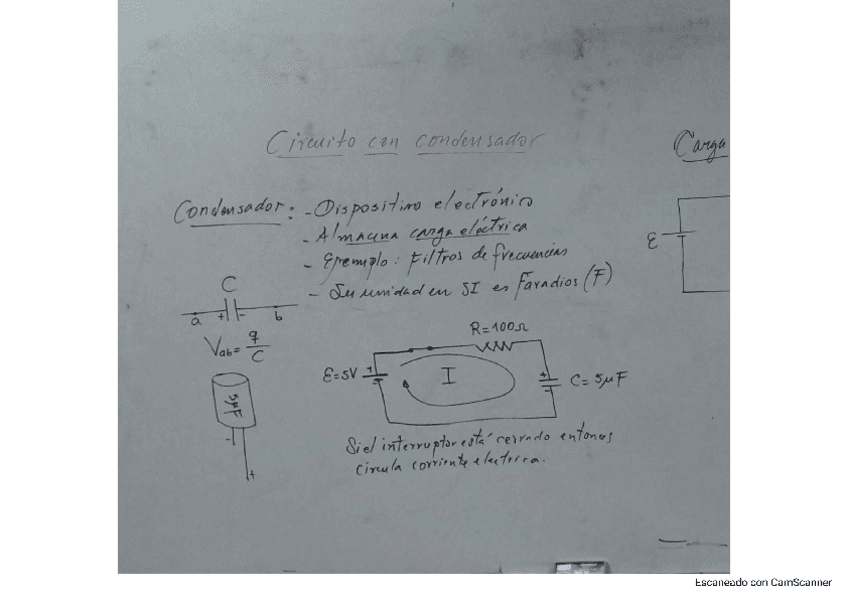 Circuito con condensador
Carga
Condensador: - Dispositivo electrónico
- Almacena carga eléctrica
- Ejemplo: Filtros de frecuencias
- Su unidad en SI es Faradios (F)
C
a + - b
Vab = q/C
5μF
- +
R=100Ω
ε=5V
I
C=5μF
+
+
ε
Si el interruptor está cerrado entonces
circula corriente electrica.
Escaneado con CamScanner